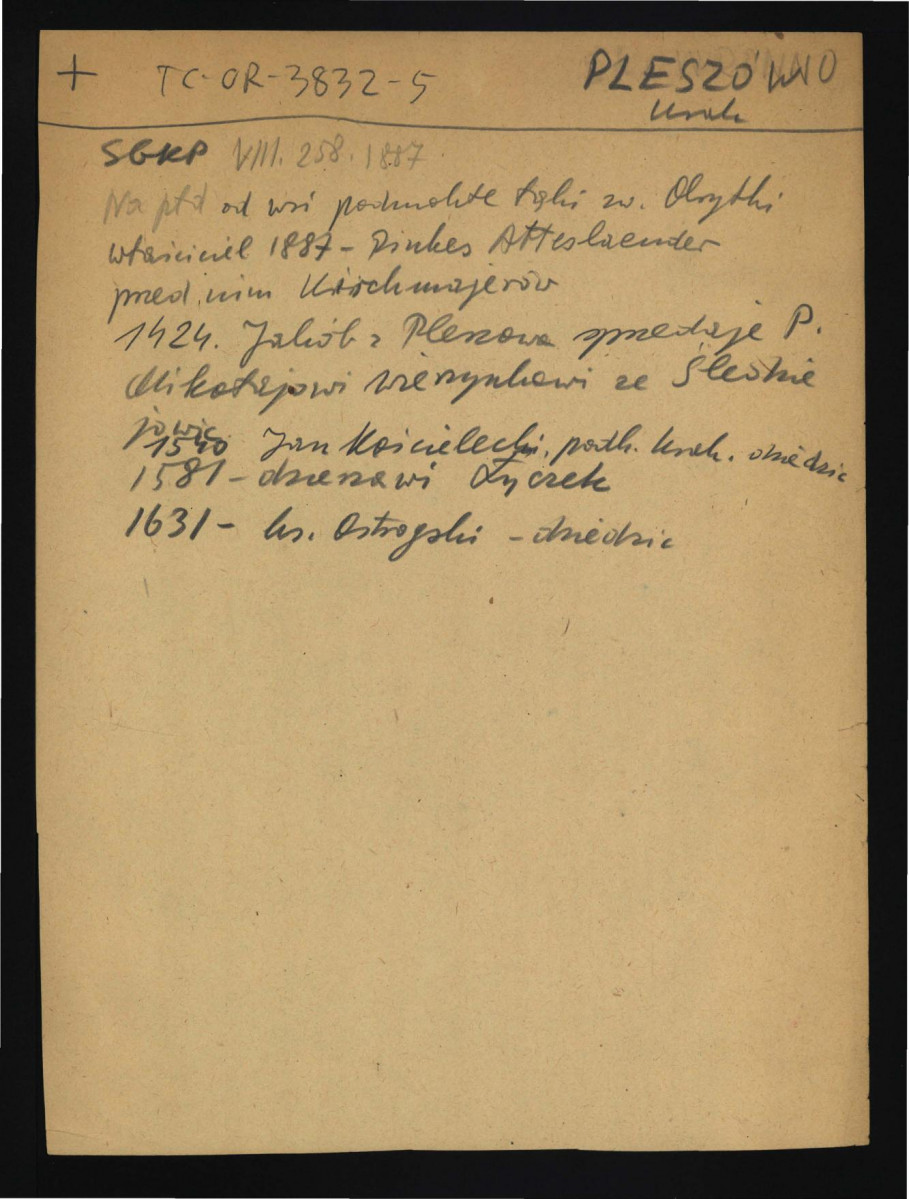 + TC-OR-3832-5 PLESZÓW
Krak
SGKP VIII. 258. 1887.
Na płd od wsi podmokłe łąki zw. Obrytki
właściciel 1887 - Pinkes Atteslaender
przed nim Kirchmajerów
1424. Jakób z Pleszowa sprzedaje P.
Mikołajowi Wierzynkowi ze Śledzie
jowic
1540 Jan Kościelecki, podk. krak. dziedzic
1581 - dzierżawi Życzek
1631 - ks. Ostrogski - dziedzic